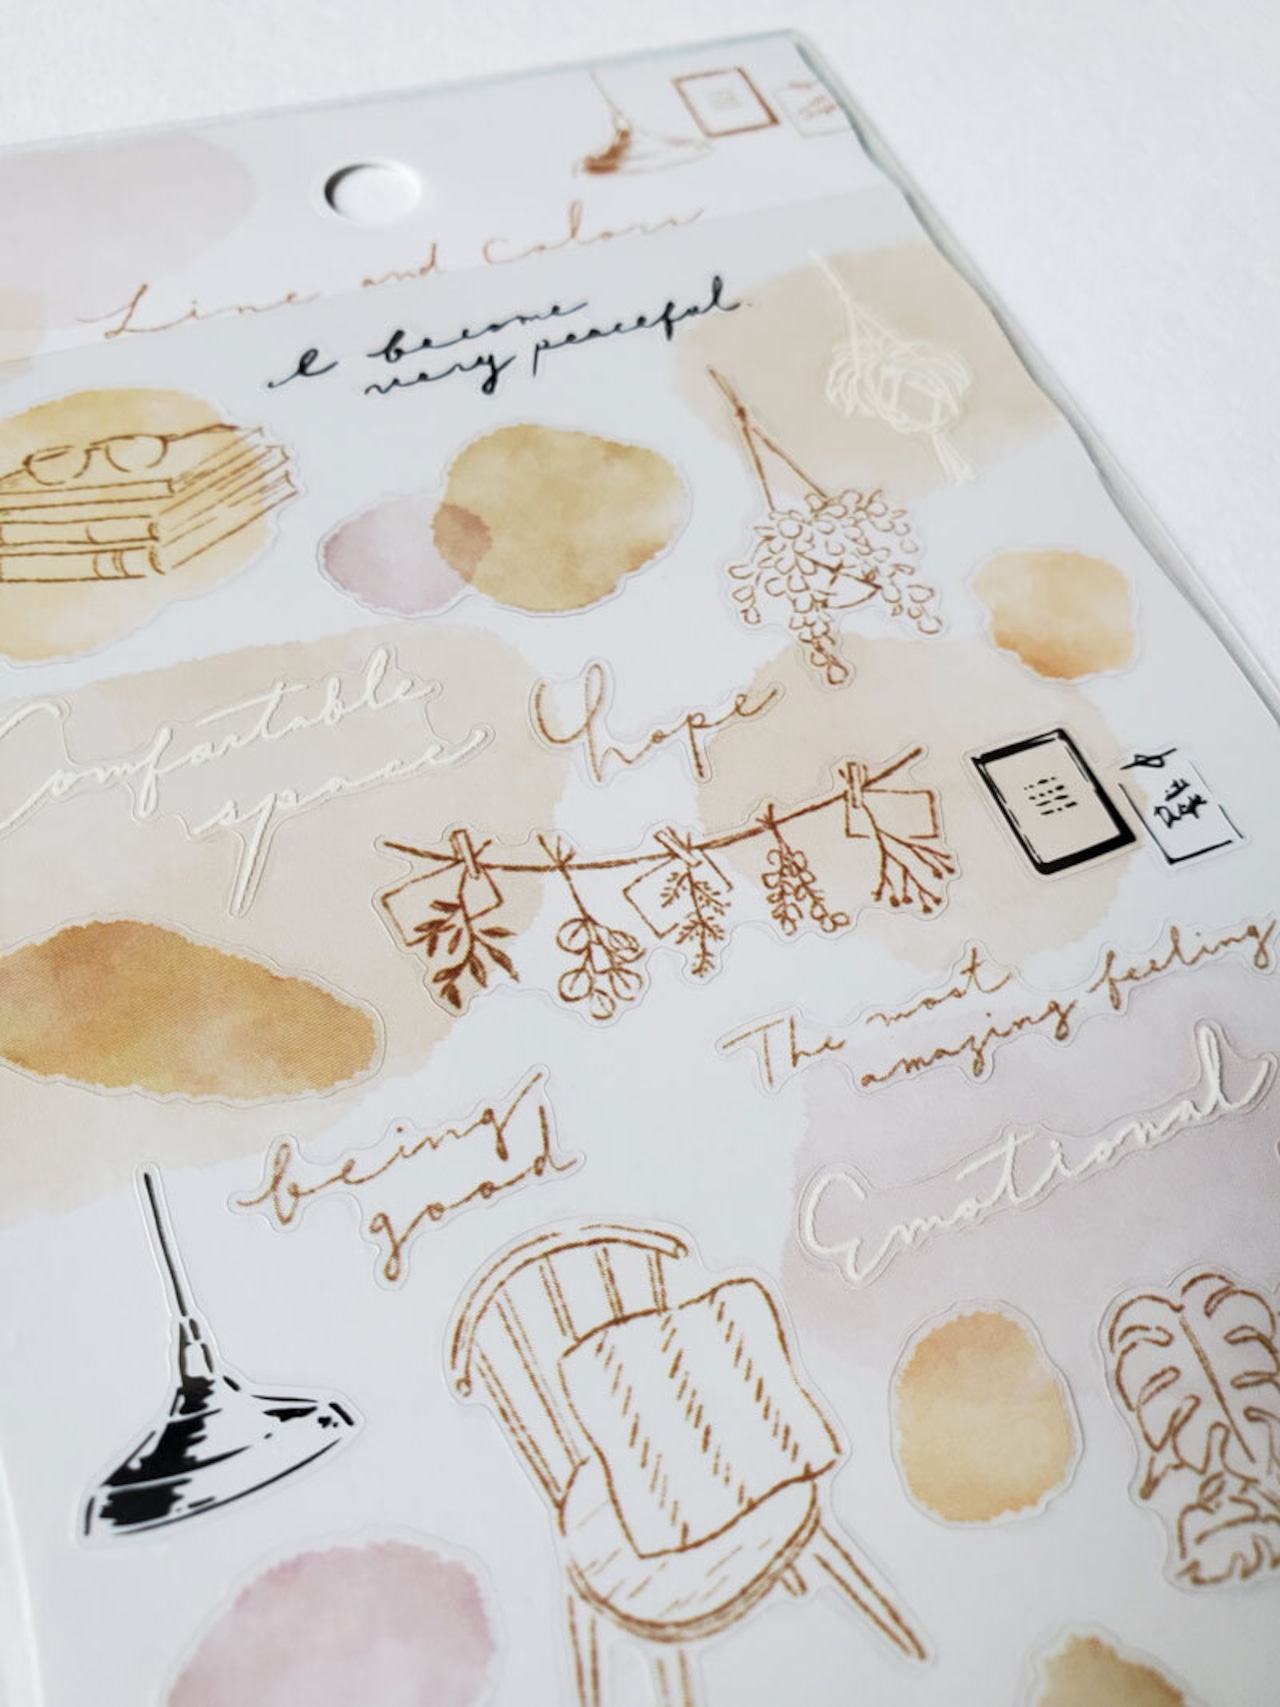 Line and Colors
I become
very peaceful.
Comfortable
space
hope
The most
amazing feeling
being
good
Emotional